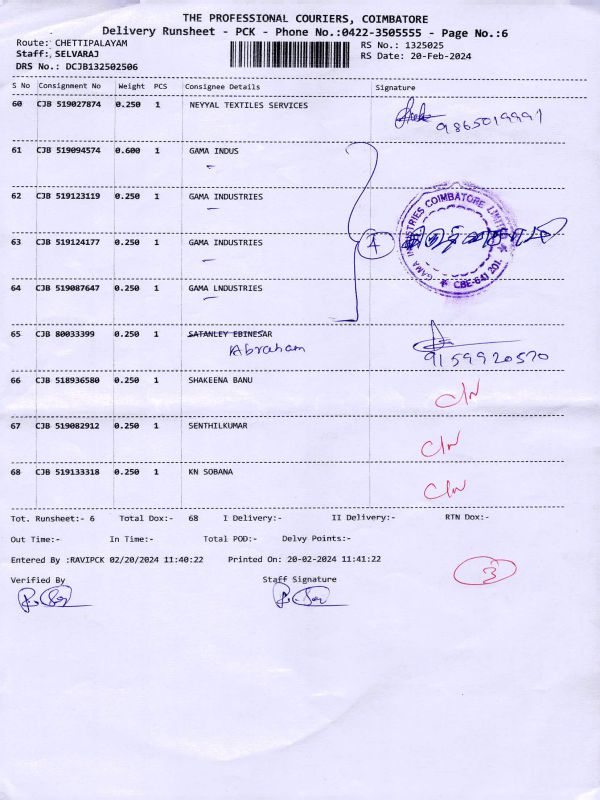 THE PROFESSIONAL COURIERS, COIMBATORE
Delivery Runsheet - PCK - Phone No.:0422-3505555 - Page No.:6
Route: CHETTIPALAYAM
Staff: SELVARAJ
DRS No.: DCJB132502506
RS No.: 1325025
RS Date: 20-Feb-2024
S No Consignment No Weight PCS Consignee Details Signature
60 CJB 519027874 0.250 1 NEYYAL TEXTILES SERVICES
9865019991
61 CJB 519094574 0.600 1 GAMA INDUS
62 CJB 519123119 0.250 1 GAMA INDUSTRIES
63 CJB 519124177 0.250 1 GAMA INDUSTRIES
4
GAMA INDUSTRIES COIMBATORE LIMITED
CBE-641 201.
64 CJB 519087647 0.250 1 GAMA LNDUSTRIES
65 CJB 80033399 0.250 1 SATANLEY EBINESAR
Abraham
9159920570
66 CJB 518936580 0.250 1 SHAKEENA BANU
C/N
67 CJB 519082912 0.250 1 SENTHILKUMAR
C/N
68 CJB 519133318 0.250 1 KN SOBANA
C/N
Tot. Runsheet:- 6 Total Dox:- 68 I Delivery:- II Delivery:- RTN Dox:-
Out Time:- In Time:- Total POD:- Delvy Points:-
Entered By :RAVIPCK 02/20/2024 11:40:22 Printed On: 20-02-2024 11:41:22
3
Verified By Staff Signature